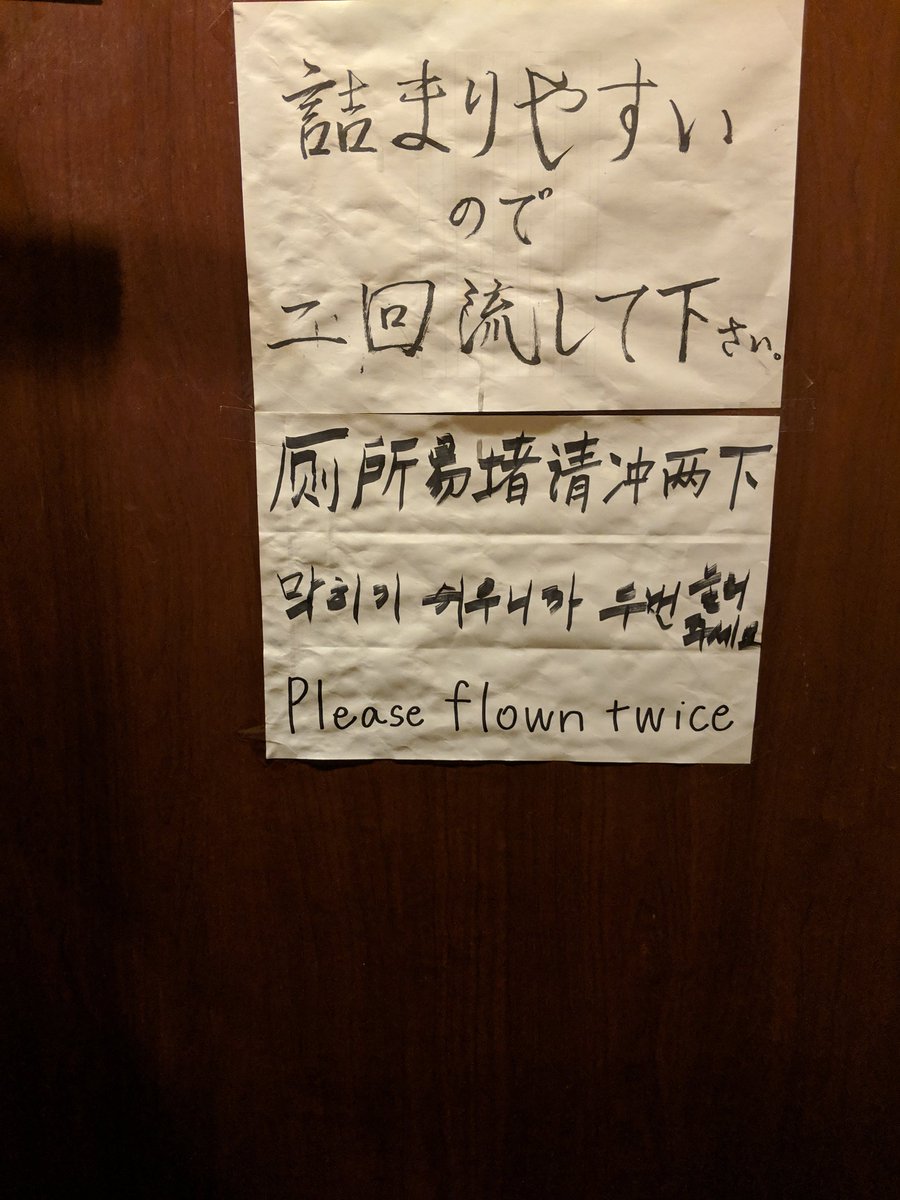 詰まりやすい
ので
二回流して下さい。
厕所易堵清冲两下
막히기 쉬우니까 두번
주세요
Please flown twice